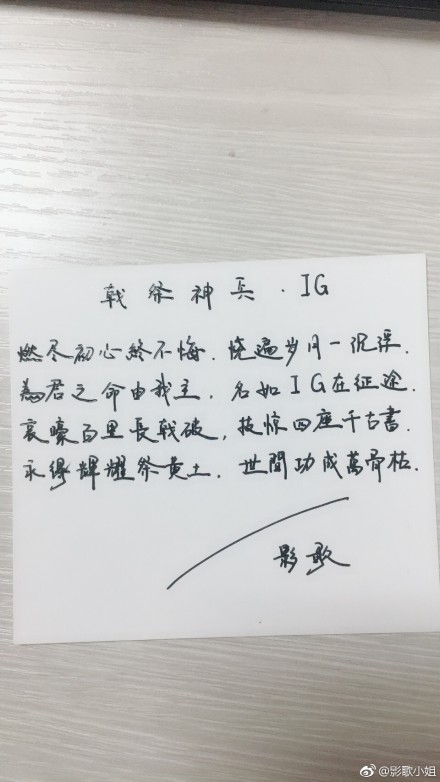 戟祭神兵.IG
燃尽初心終不悔.饶遍岁月一沉浮.
為君之命由我主,名如IG在征途.
哀嚎百里長戟破,技惊四座千古書.
永得輝耀祭黄土.世間功成萬骨枯.
影歌
@影歌小姐